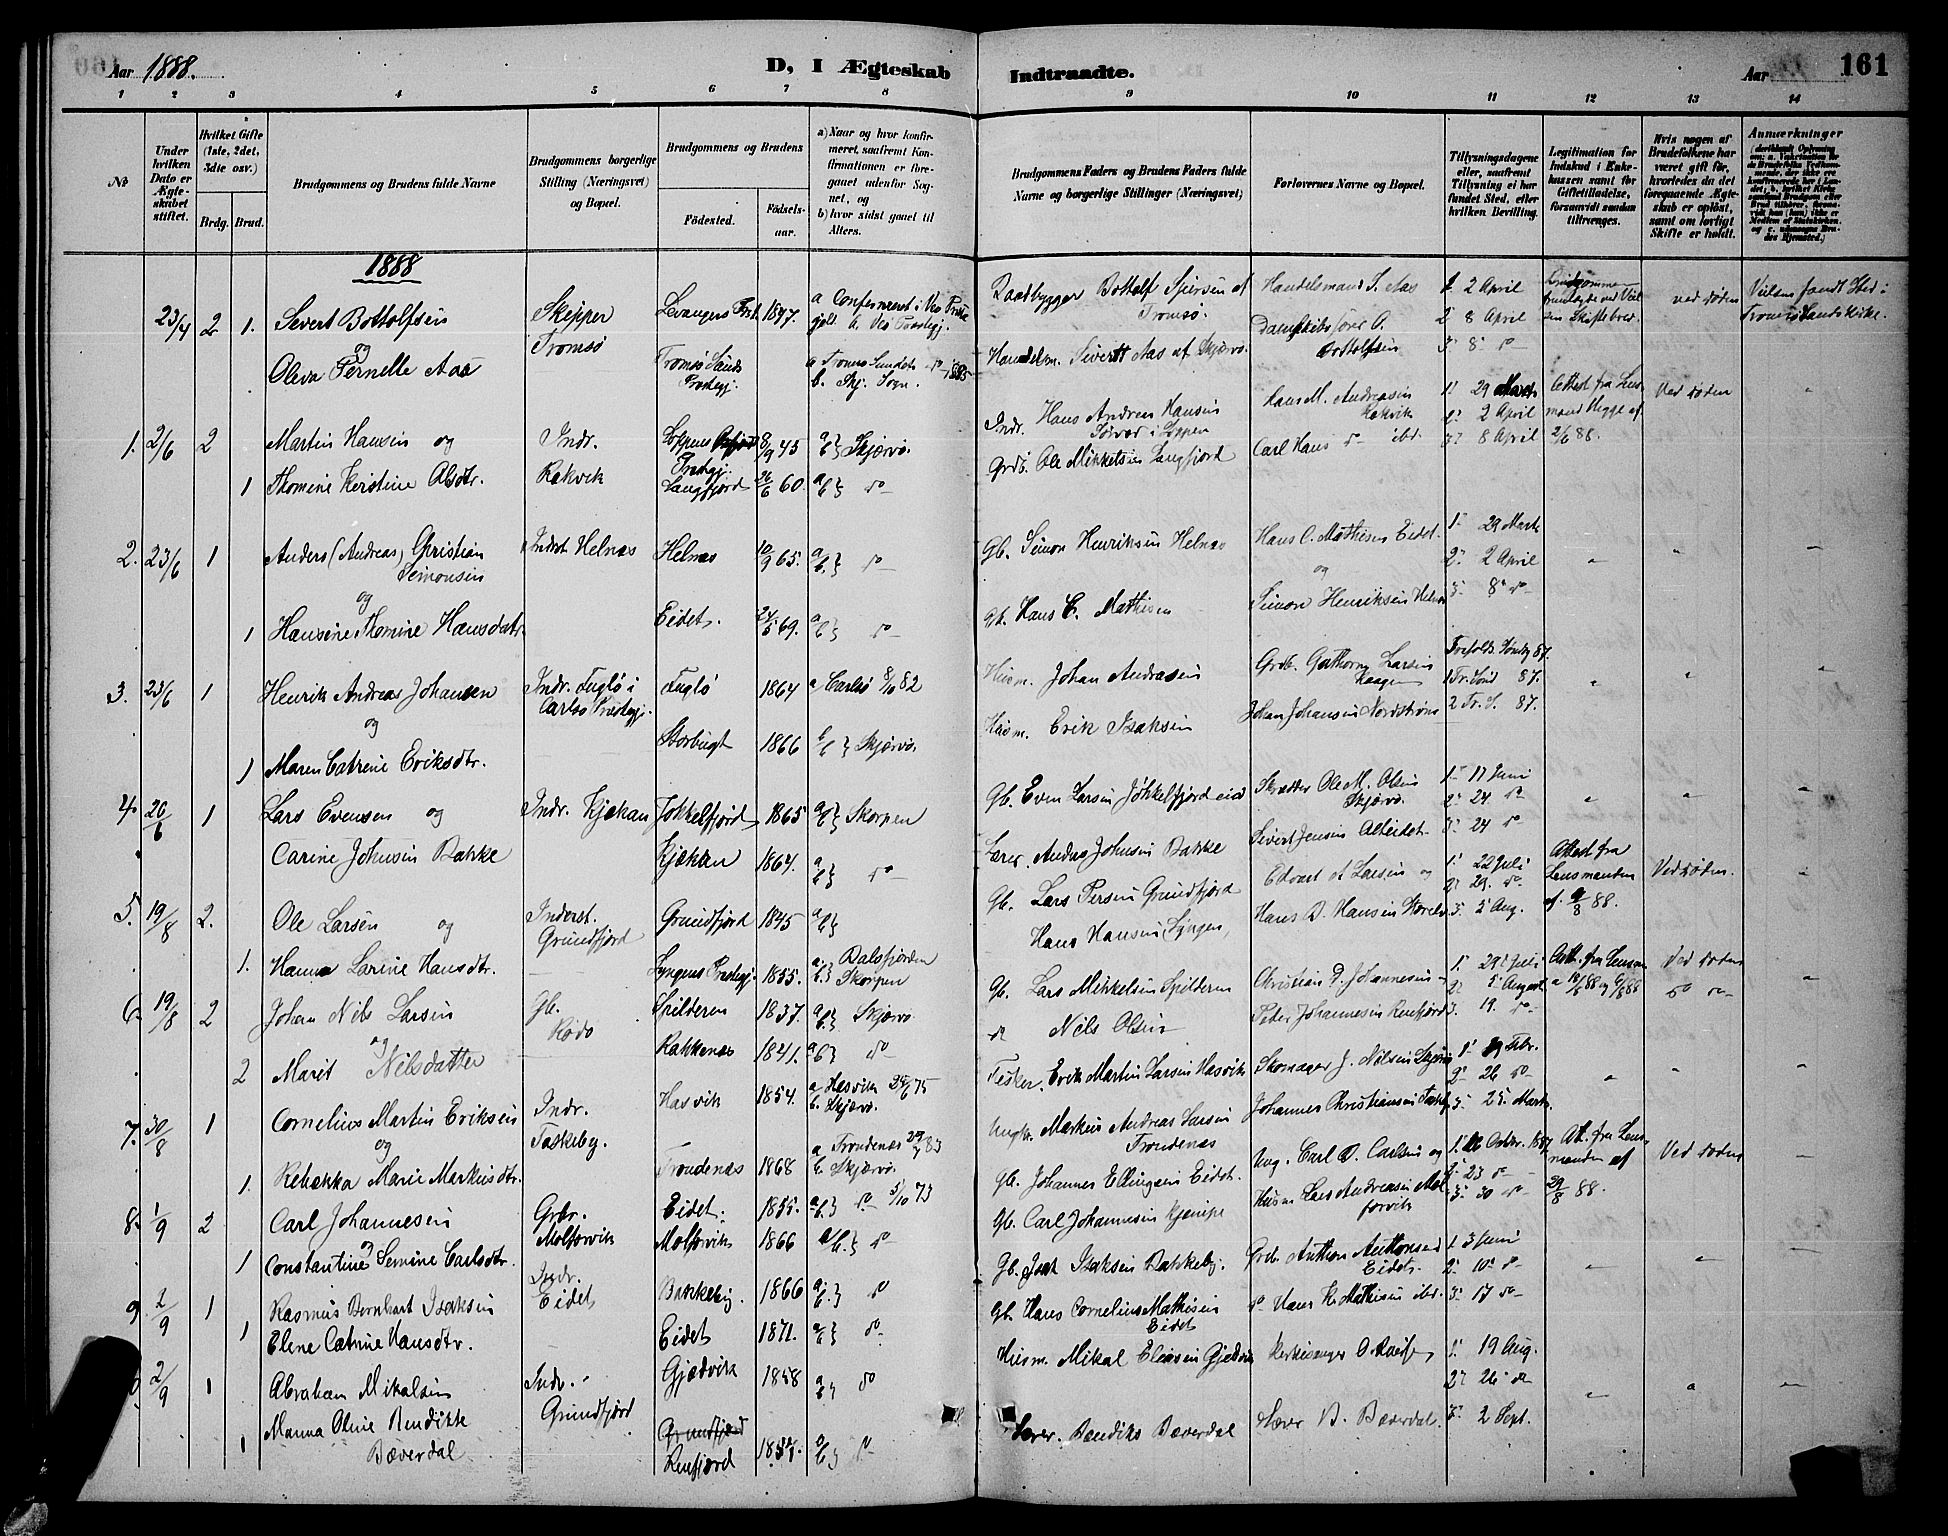 Aar 1888.
D, I Ægteskab
Indtraadte.
Aar
161
1 2 3 4 5 6 7 8 9 10 11 12 13 14
No
Under hvilken Dato er Ægteskabet stiftet.
Hvilket Gifte (1ste, 2det, 3die osv.)
Brdg. Brud.
Brudgommens og Brudens fulde Navne
Brudgommens borgerlige Stilling (Næringsvei) og Bopæl.
Brudgommens og Brudens
Fødested.
Fødselsaar.
a) Naar og hvor konfirmeret, saafremt Konfirmationen er foregaaet udenfor Sognet, og
b) hvor sidst gaaet til Alters.
Brudgommens Faders og Brudens Faders fulde Navne og borgerlige Stillinger (Næringsvei)
Forlovernes Navne og Bopæl.
Tillysningsdagene eller, saafremt Tillysning ei har fundet Sted, efter hvilken Bevilling.
Legitimation for Indskud i Enkekassen samt for Giftetilladelse, forsaavidt saadan tiltrænges.
Hvis nogen af Brudefolkene har været gift før, hvorledes da det foregaaende Ægteskab er opløst, samt om lovligt Skifte er holdt.
Anmærkninger
1888
23/4 2 1. Sivert Bottolfsen
og
Oleva Pernelle Aas
Skipper
Tromsø
Levanger 1847.
Tromsø Sunds Prestegj.
b. Skj. Sogn.
Baadbygger Bottolf Sjursen af Tromsø.
Handelsm. Sivert Aas af Skjærvø.
Handelsmand S. Aas
Dampskibsfører O. Bottolfsen
1. 2 April
2. 8 April
3. 8 do
ved døden
1. 2/6 2 Martin Hansen og
1 Thomine Kerstine Olsdtr.
Indr.
Rakvik
Loppens Prestegj. 8/9 45
Langfjord 26/6 60.
a b } Skjærvø.
a b } do
Indr. Hans Andreas Hansen
i Loppen
Grdb. Ole Mikkelsen Langfjord
Hans M. Andreasen Rakvik
Carl Hans do ibd.
1. 29 Marts
2. 2 April
3. 8 April
Attest fra Lensmand Hegge af 2/6 88.
Ved døden
2. 23/6 1 Anders (Andreas) Christian Simonsen
og
1 Hansine Thomine Hansdatr.
Inderst Helnæs
Helnæs 10/9 65.
Eidet. 24/5 69.
a b } do
a b } do
Gb. Simon Henriksen Helnæs
Gb. Hans C. Mathisen
Hans C. Mathisen Eidet.
og
Simon Henriksen Helnæs
1. 29 Marts
2. 2 April
3. 8 do
3. 23/6 1 Henrik Andreas Johansen
og
1 Maren Catrine Eriksdtr.
Indr. Fuglø i Carlsø Prestegj.
Fuglø 1864
Storbugt 1866
a Carlsø 8/10 82
a b } Skjærvø.
Husm. Johan Andreasen
Husm. Erik Isaksen
Grdb. Gathorm Larsen Kaagen
Johan Johansen Nordstrøms
87.
1 Tr. Sønd 87.
2 Tr. S. 87.
4. 20/6 1 Lars Evensen og
Carine Johnsen Bakke
Indr. Kjækan
Jøkkelfjord 1865
Kjækan 1864.
a b } Skorpen
a b } do
Gb. Even Larsen Jøkkelfjordeid
Lærer Anders Johnsen Bakke
Skrædder Ole M. Olsen Skjærvø.
Sivert Jensen Alteidet
1. 17 Juni
2. 24 do
3. 24 do
5. 19/8 2. Ole Larsen og
1. Hanna Larine Hansdtr.
Inderst. Grundfjord
Grundfjord 1845
Lyngens Prestegj. 1855.
a b }
a. Balsfjorden
b. Skorpen
Gb. Lars Persen Grundfjord
Hans Hansen Lyngen,
Edvart A. Larsen og
Hans D. Hansen
1. 22 Juli
2. 29. do
3. 5 Aug.
Attest fra Lensmanden af. 9/8 88.
Ved døden.
6. 19/8 2 Johan Nils Larsen
og
2 Marit Nilsdatter
Gb.
Rødø
Spilderen 1837.
Bakkenæs 1841.
a b } Skjærvø
a b } do
Gb. Lars Mikkelsen Spilderen
do Nils Olsen
Christian P. Johannesen
Peder Johannesen Reinfjord
1. 29 Juli
2. 5 August
3. 19. do
Att. fra Lensm.
Ved døden
do do
7. 30/8 1 Cornelius Martin Eriksen
og
1. Rebekka Marie Markusdtr.
Indr.
Taskeby.
Hasvik 1854.
Trondenæs 1868
a Hasvik 25/6 75
b. Skjærvø.
a Trondenæs 29/7 83
b. Skjærvø.
Fisker. Erik Martin Larsen Hasvik
Ungk. Markus Andreas Larsen Trondenæs
Skomager J. Nilsen
Johannes Christiansen
1. 19 Febr.
2. 26 do
3. 25. Marts.
8. 1/9 2 Carl Johannesen
og
1 Constantine Semine Carlsdtr.
Grbr.
Molforvik
Eidet. 1855.
Molforvik 1866
a b } do 5/10 73
a b } do
Gb. Johannes Ellingsen Eidet.
Gb. Carl Johannesen Kjænipe
Ung. Carl D. Carlsen og
Husm Lars Andreasen Molforvik
1. 16 Octbr. 1887
2. 23 do
3. 30 do
Att. fra Lensmanden af 29/8 88.
Ved døden
9. 2/9 1 Rasmus Bernhart Isaksen
1 Elene Catrine Hansdtr.
Indr.
Eidet
Bakkeby. 1866
Eidet 1871.
a b } do
a b } do
Gb. Isak Isaksen Bakkeby.
Gb. Hans Cornelius Mathisen Eidet
Grdb. Anthon Anthonsen Eidet.
do Hans K. Mathisen ibd.
1. 3 Juni
2. 10 do
3. 17 do
2/9 1 Abraham Mikalsen
Manna Oline Bendikte
1 Bæverdal
Indr.
Grundfjord
Gjædvik 1858
Reinfjord
a b } do
a b } do
Husm. Mikal Eliasen Gjædvik
Lærer. Bendiks Bæverdal
Kirkesanger O.
Lærer B. Bæverdal
1. 19 Aug.
2. 26 do
3. 2 Sept.